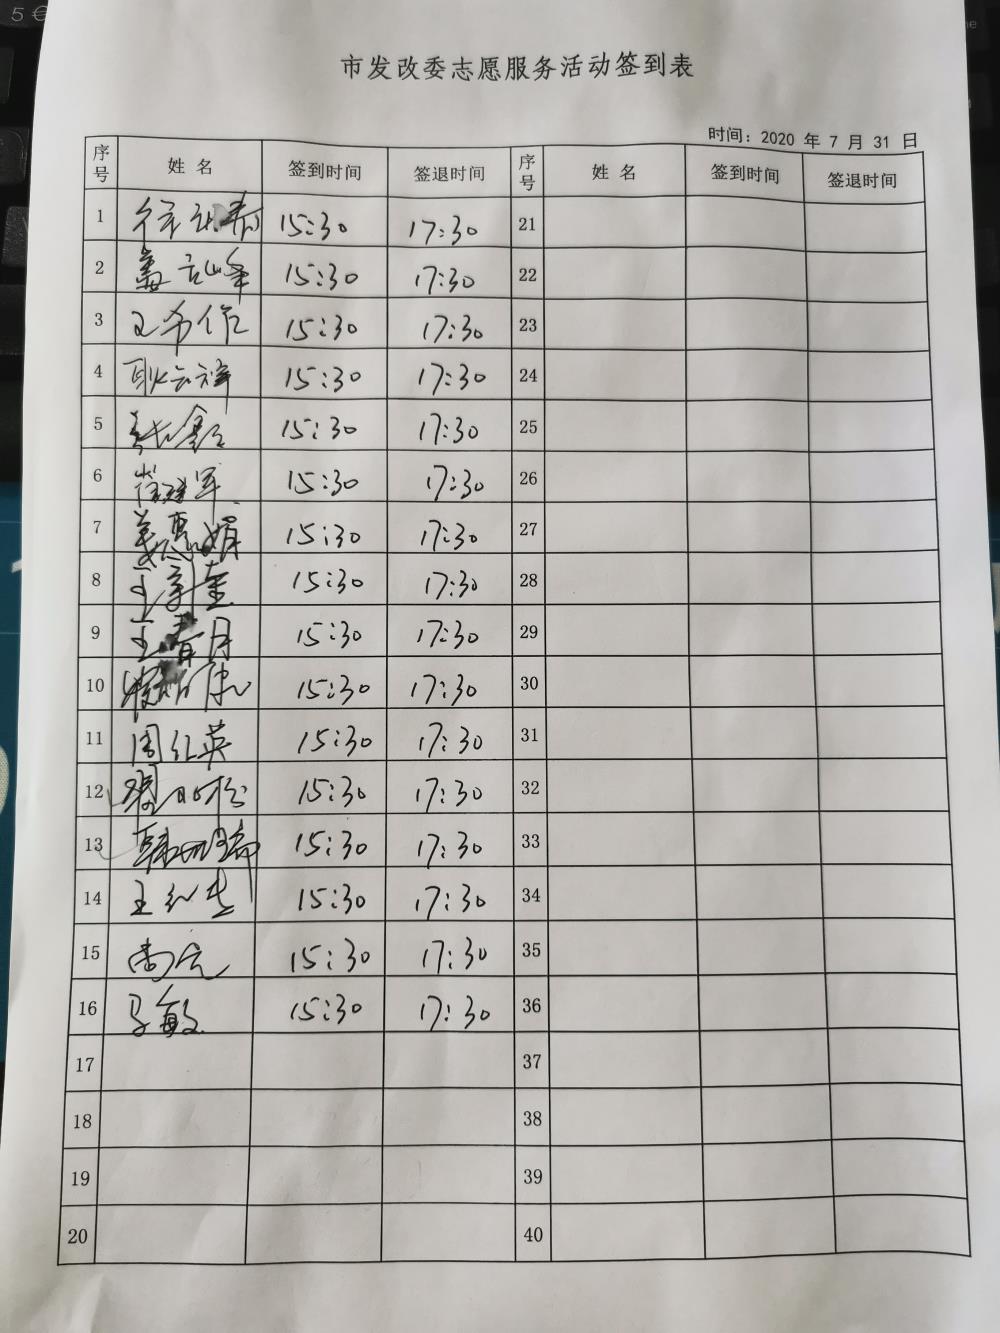 5 €
市发改委志愿服务活动签到表
时间：2020 年 7 月 31 日
序号 姓 名 签到时间 签退时间 序号 姓 名 签到时间 签退时间
1 15:30 17:30 21
2 15:30 17:30 22
3 王希作 15:30 17:30 23
4 耿云祥 15:30 17:30 24
5 15:30 17:30 25
6 15:30 17:30 26
7 姜惠娟 15:30 17:30 27
8 15:30 17:30 28
9 王春月 15:30 17:30 29
10 15:30 17:30 30
11 周红英 15:30 17:30 31
12 15:30 17:30 32
13 15:30 17:30 33
14 王 15:30 17:30 34
15 15:30 17:30 35
16 马敏 15:30 17:30 36
17 37
18 38
19 39
20 40